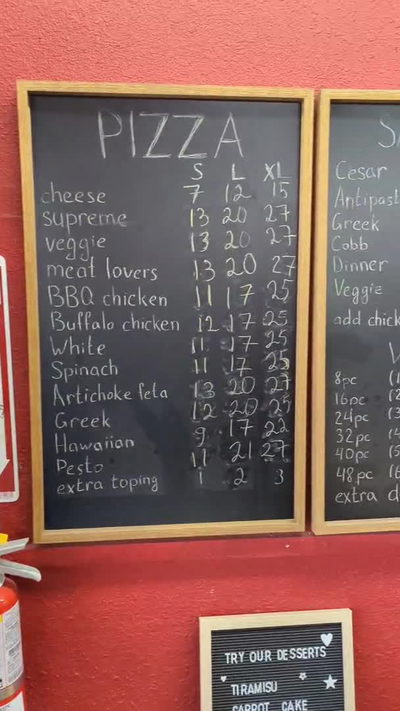 PIZZA
S L XL
cheese 7 12 15
supreme 13 20 27
veggie 13 20 27
meat lovers 13 20 27
BBQ chicken 11 17 25
Buffalo chicken 12 17 25
White 11 17 25
Spinach 11 17 25
Artichoke feta 13 20 27
Greek 12 20 25
Hawaiian 9 17 22
Pesto 11 21 27
extra toping 1 2 3
Cesar
Antipast
Greek
Cobb
Dinner
Veggie
add chick
8pc
16pc
24pc
32pc
40pc
48pc
extra d
TRY OUR DESSERTS
TIRAMISU
CARROT CAKE